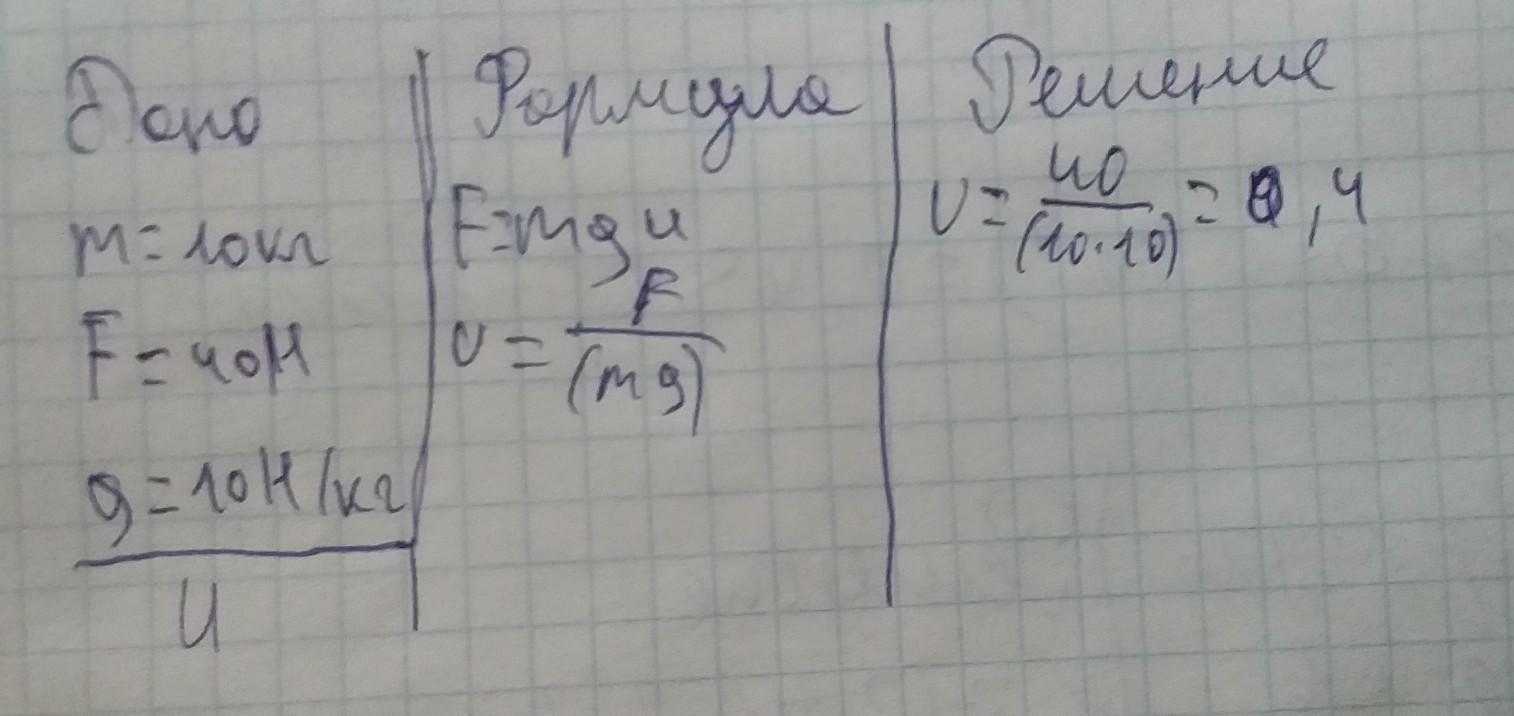 Дано
m=10кг
F=40Н
g=10Н/кг
u
Формула
F=mgu
u=F/(mg)
Решение
u=40/(10·10)=0,4